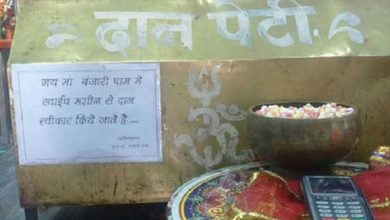 दान पेटी
जय मां बंजारी धाम मे
स्वाईप मशीन से दान
स्वीकार किये जाते है ...
ॐ